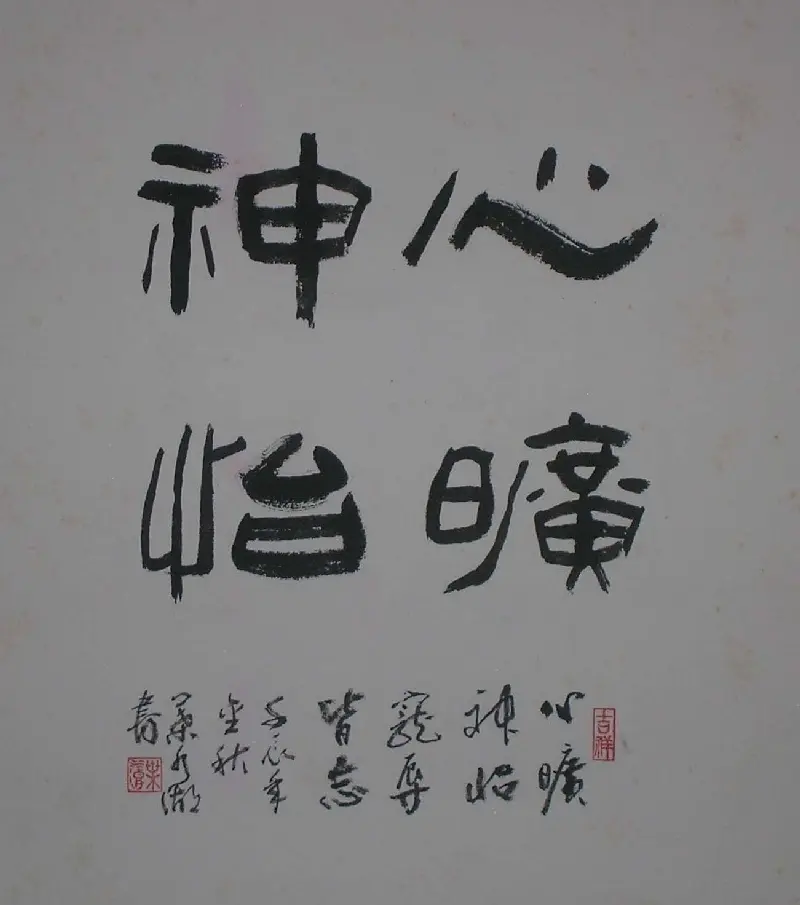 心曠
神怡
心曠
神怡
寵辱
皆忘
壬辰年
金秋
葉水湖
書
吉祥